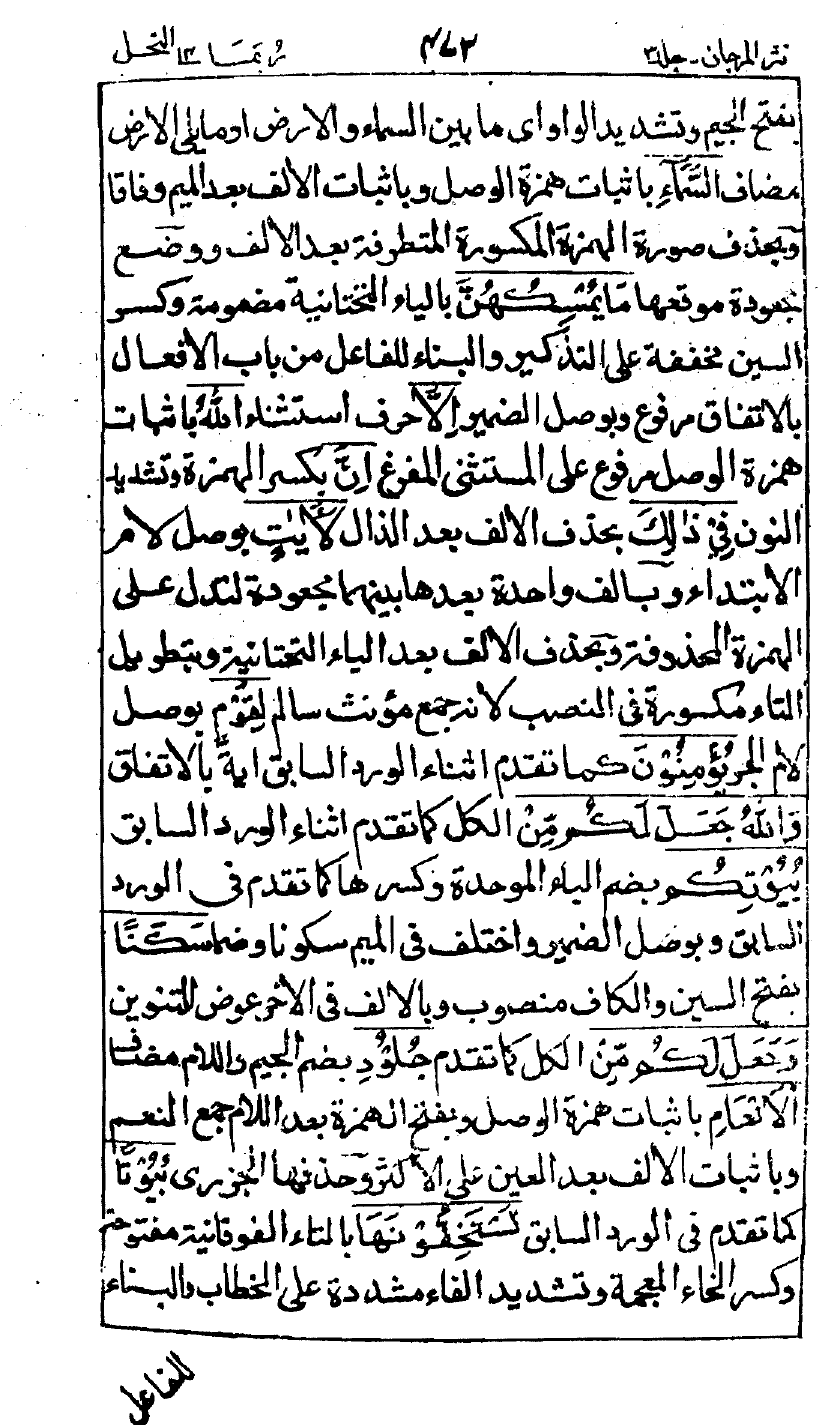 نثر المرجان - جلد٣ ٤٧٢ ربمـا ١٤ النحل
بفتح الجيم وتشديد الواو اى ما بين السماء و الارض او ما يلى الارض
مضاف السَّمَآءِ باثبات همزة الوصل و باثبات الالف بعد الميم وفاقا
وبحذف صورة الهمزة المكسورة المتطرفة بعد الالف ووضع
مجعودة موقعها مَا يُمْسِكُهُنَّ بالياء التحتانية مضمومة وكسر
السين مخففة على التذكير والبناء للفاعل من باب الافعال
بالاتفاق مرفوع وبوصل الضمير اِلَّا حرف استثناء اللّٰهُ باثبات
همزة الوصل مرفوع على المستثنى المفرغ اِنَّ بكسر الهمزة وتشديد
النون فِيْ ذٰلِكَ بحذف الالف بعد الذال لَاٰيٰتٍ بوصل لام
الابتداء وبالف واحدة بعدها بينهما مجعودة لتدل على
الهمزة المحذوفة وبحذف الالف بعد الياء التحتانية وبتطويل
التاء مكسورة فى النصب لانه جمع مؤنث سالم لِقَوْمٍ بوصل
لام الجر يُؤْمِنُوْنَ كما تقدم اثناء الورد السابق اية بالاتفاق
وَاللّٰهُ جَعَلَ لَكُمْ مِّنْ الكل كما تقدم اثناء الورد السابق
بُيُوْتِكُمْ بضم الباء الموحدة وكسرها كما تقدم فى الورد
السابق وبوصل الضمير واختلف فى الميم سكونا وضما سَكَنًا
بفتح السين والكاف منصوب وبالالف فى الاخر عوض التنوين
وَجَعَلَ لَكُمْ مِّنْ الكل كما تقدم جُلُوْدِ بضم الجيم واللام مضاف
الْاَنْعَامِ باثبات همزة الوصل وبفتح الهمزة بعد اللام جمع النعم
وباثبات الالف بعد العين على الاكثر وحذفها الجزرى بُيُوْتًا
كما تقدم فى الورد السابق تَسْتَخِفُّوْنَهَا بالتاء الفوقانية مفتوحة
وكسر الخاء المعجمة وتشديد الفاء مشددة على الخطاب بالبناء
للفاعل